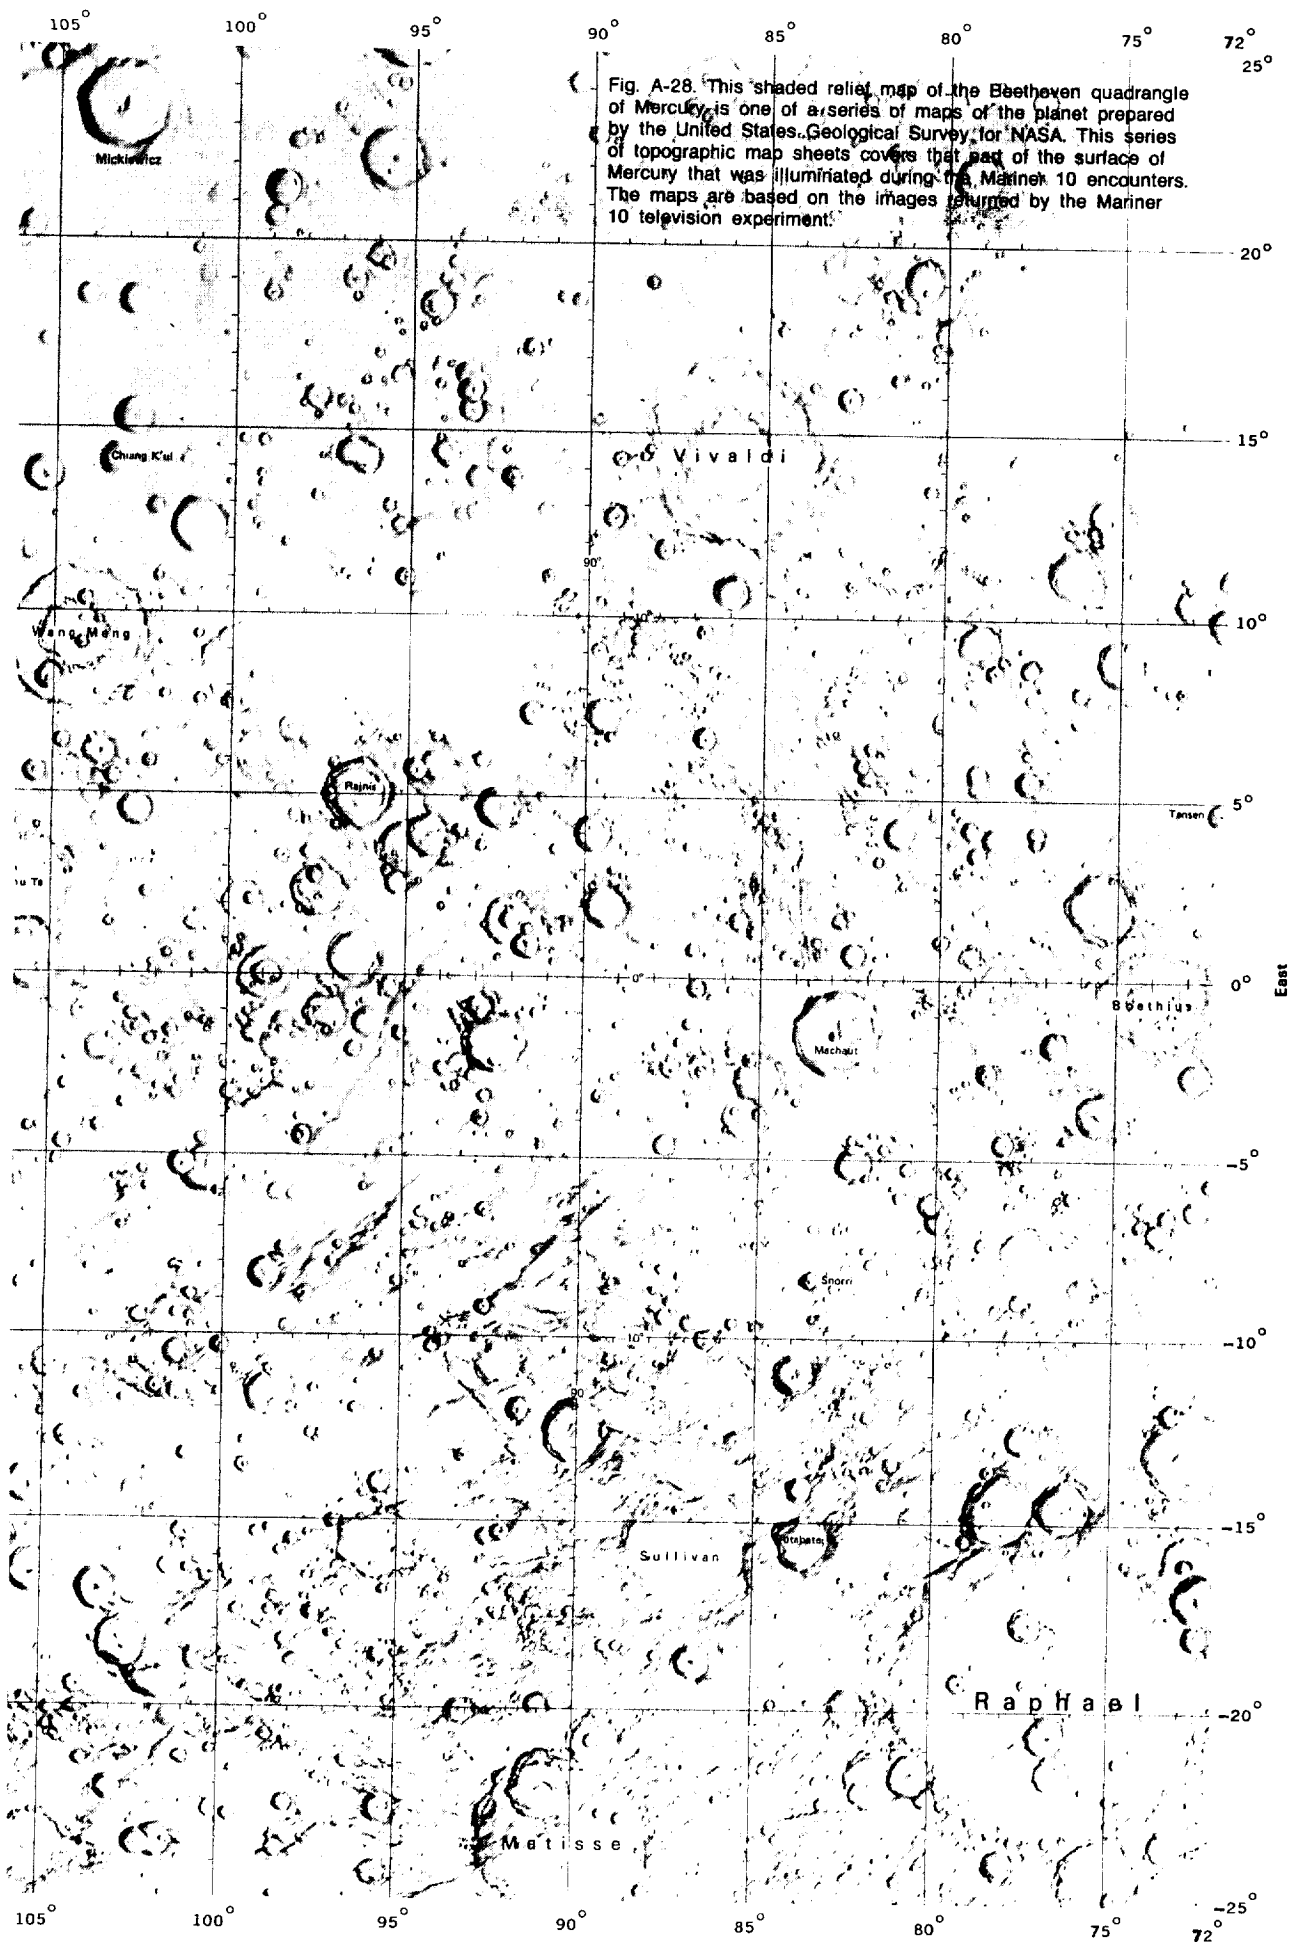 105° 100° 95° 90° 85° 80° 75° 72°
25°
Fig. A-28. This shaded relief map of the Beethoven quadrangle
of Mercury is one of a series of maps of the planet prepared
by the United States Geological Survey for NASA. This series
of topographic map sheets covers that part of the surface of
Mercury that was illuminated during the Mariner 10 encounters.
The maps are based on the images returned by the Mariner
10 television experiment.
Mickiewicz
20°
15°
Chiang K'ui
Vivaldi
90°
10°
Wang Meng
10°
Rajnis
5°
Tansen
0°
0°
East
Boethius
Machaut
-5°
Snorri
10°
-10°
90
-15°
Sullivan
Raphael
-20°
Matisse
-25°
105° 100° 95° 90° 85° 80° 75° 72°